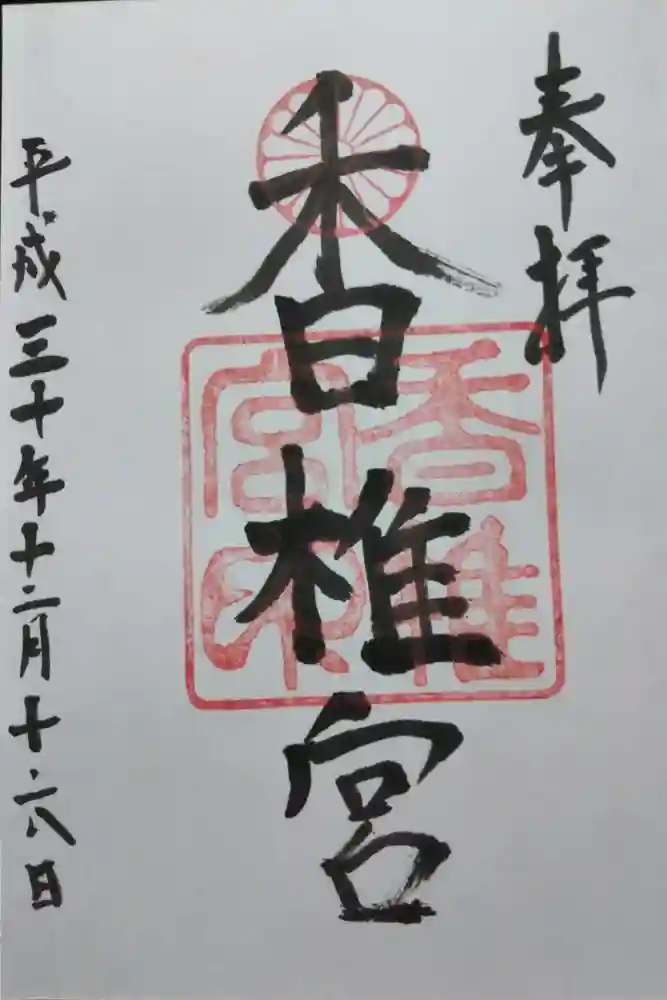 奉拝
香椎宮
香椎宮印
平成三十年十二月十六日